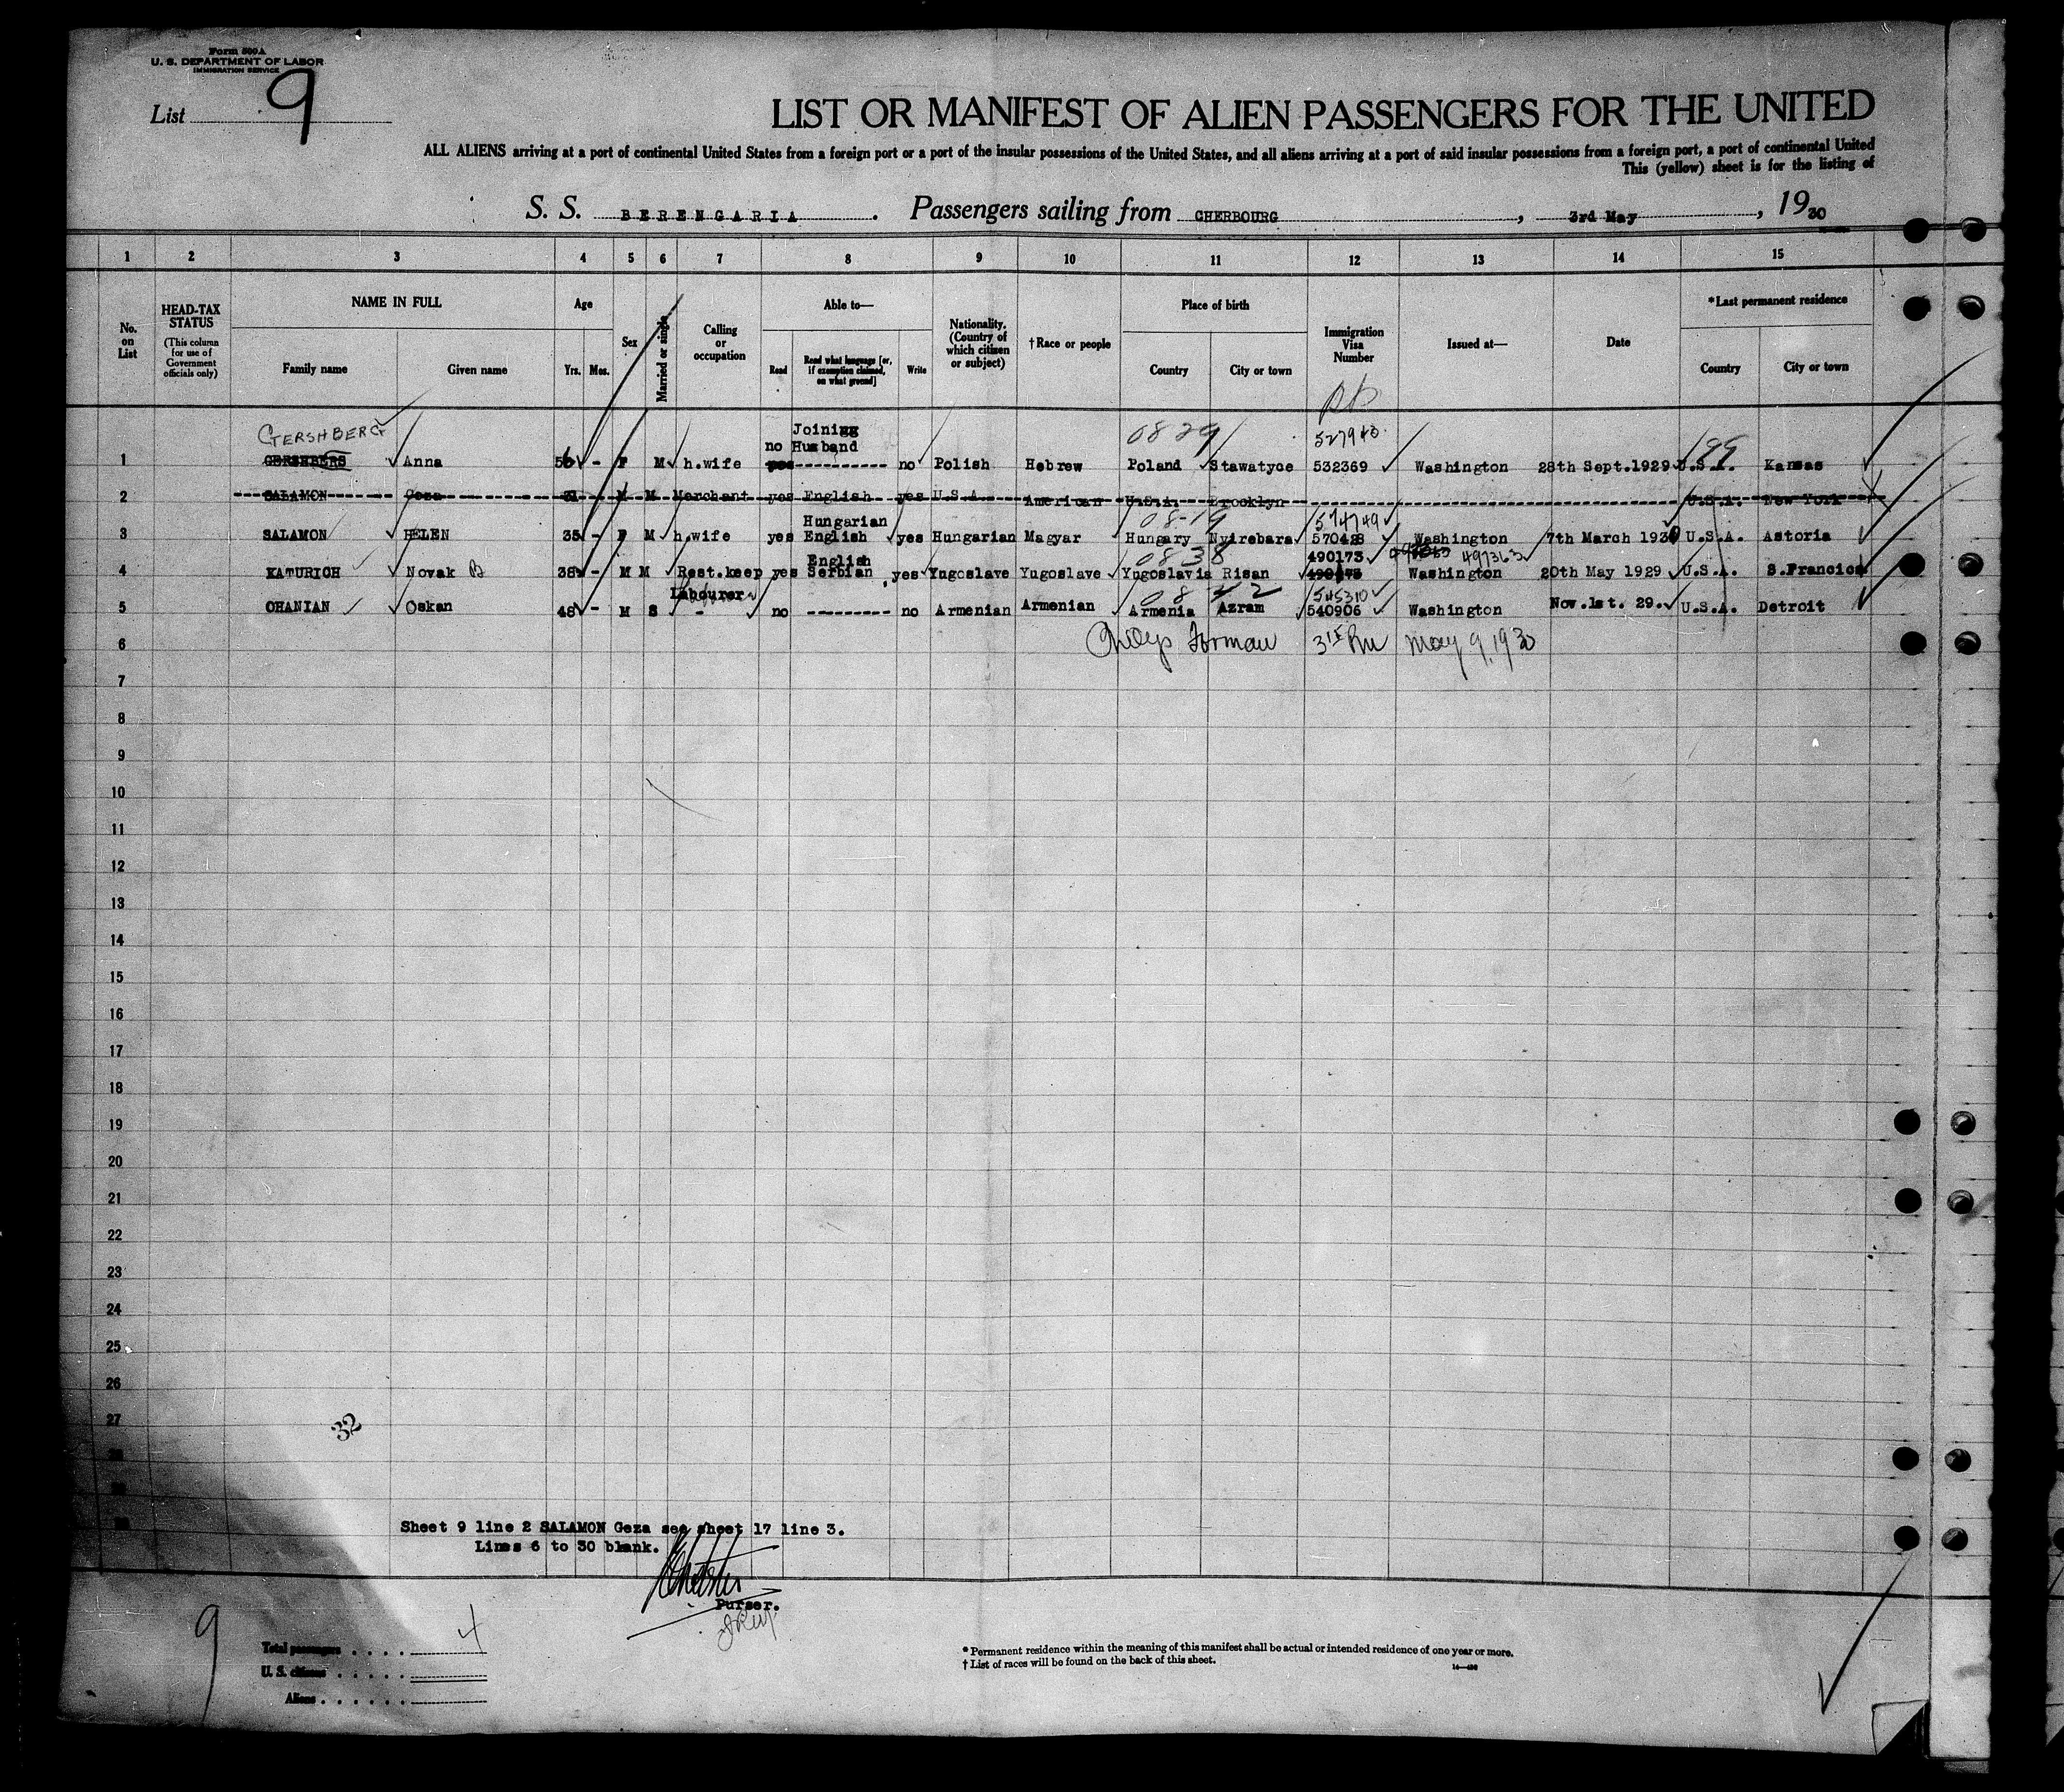 Form 500A
U. S. DEPARTMENT OF LABOR
IMMIGRATION SERVICE
List 9
LIST OR MANIFEST OF ALIEN PASSENGERS FOR THE UNITED
ALL ALIENS arriving at a port of continental United States from a foreign port or a port of the insular possessions of the United States, and all aliens arriving at a port of said insular possessions from a foreign port, a port of continental United
This (yellow) sheet is for the listing of
S. S. BERENGARIA. Passengers sailing from CHERBOURG, 3rd May, 1930
1 2 3 4 5 6 7 8 9 10 11 12 13 14 15
No. on List
HEAD-TAX STATUS (This column for use of Government officials only)
NAME IN FULL Family name Given name
Age Yrs. Mos.
Sex
Married or single
Calling or occupation
Able to— Read Read what language [or, if exemption claimed, on what ground] Write
Nationality. (Country of which citizen or subject)
†Race or people
Place of birth Country City or town
Immigration Visa Number
Issued at—
Date
*Last permanent residence Country City or town
GERSHBERG Joining no Husband 0829 527943 99
1 Anna - F M h.wife yes ---------- no Polish Hebrew Poland Stawatyce 532369 Washington 28th Sept.1929 U.S.A. Kansas
2 SALAMON Geza 31 M M Merchant yes English yes U.S.A. American U.S.A. Brooklyn U.S.A. New York
Hungarian 08-19 574749
3 SALAMON HELEN 35 - F M h.wife yes English yes Hungarian Magyar Hungary Nyirebara 57048 Washington 7th March 1930 U.S.A. Astoria
English 0838 490173 497363
4 KATURICH Novak B 38 - M M Rest.keep yes Serbian yes Yugoslave Yugoslave Yugoslavia Risan 490173 Washington 20th May 1929 U.S.A. S.Francisc
Labourer 08 42 545310
5 OHANIAN Oskan 48 - M S - no -------- no Armenian Armenian Armenia Azram 540906 Washington Nov.1st. 29. U.S.A. Detroit
6 May 9, 1930
7
8
9
10
11
12
13
14
15
16
17
18
19
20
21
22
23
24
25
26
27
32
Sheet 9 line 2 SALAMON Geza see sheet 17 line 3.
Lines 6 to 30 blank.
Purser.
9
Total passengers . . . . 4
U. S. citizens . . . . .
Aliens . . . . . .
* Permanent residence within the meaning of this manifest shall be actual or intended residence of one year or more.
† List of races will be found on the back of this sheet.